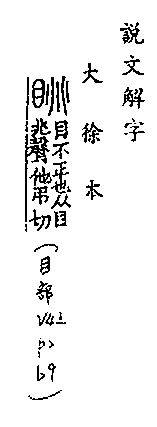 說文解字
大徐本
眺 目不正也从目
兆聲他弔切
(目部
V4上
P>
69)